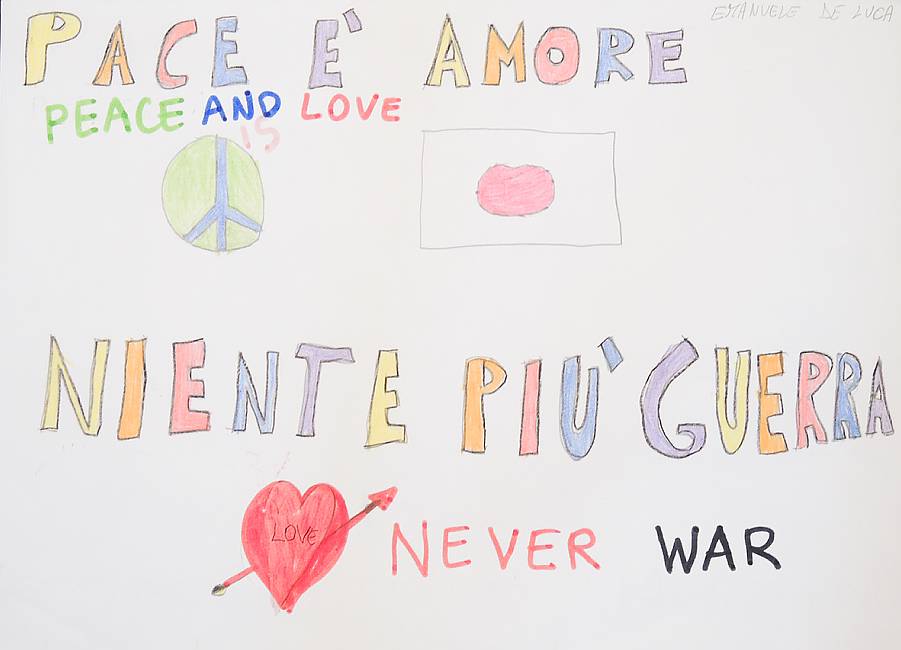 EMANUELE DE LUCA
PACE E' AMORE
PEACE AND LOVE
IS
NIENTE PIU' GUERRA
LOVE
NEVER WAR